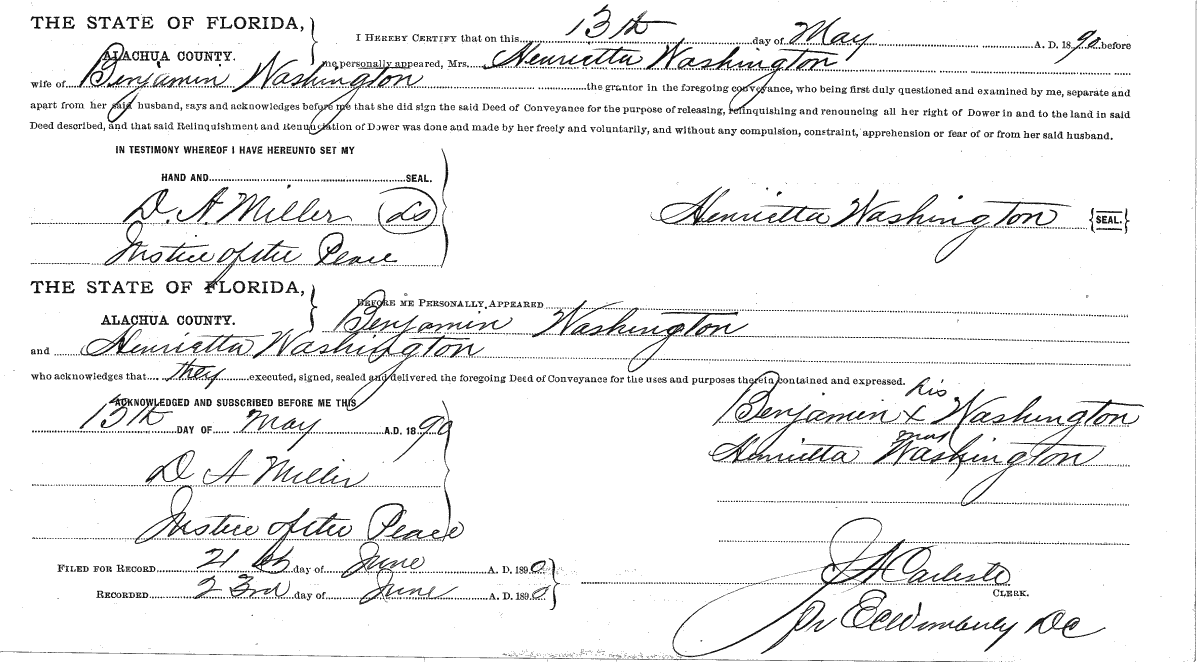 THE STATE OF FLORIDA,
ALACHUA COUNTY.
I HEREBY CERTIFY that on this 13th day of May A. D. 1890 before
me personally appeared, Mrs. Henrietta Washington
wife of Benjamin Washington the grantor in the foregoing conveyance, who being first duly questioned and examined by me, separate and
apart from her said husband, says and acknowledges before me that she did sign the said Deed of Conveyance for the purpose of releasing, relinquishing and renouncing all her right of Dower in and to the land in said
Deed described, and that said Relinquishment and Renunciation of Dower was done and made by her freely and voluntarily, and without any compulsion, constraint, apprehension or fear of or from her said husband.
IN TESTIMONY WHEREOF I HAVE HEREUNTO SET MY
HAND AND SEAL.
D. A Miller LS
Justice of the Peace
Henrietta Washington {SEAL.}
THE STATE OF FLORIDA,
ALACHUA COUNTY.
BEFORE ME PERSONALLY APPEARED
Benjamin Washington
and Henrietta Washington
who acknowledges that they executed, signed, sealed and delivered the foregoing Deed of Conveyance for the uses and purposes therein contained and expressed.
ACKNOWLEDGED AND SUBSCRIBED BEFORE ME THIS
13th DAY OF May A.D. 1890
D A Miller
Justice of the Peace
his
Benjamin x Washington
mark
Henrietta Washington
FILED FOR RECORD 21 day of June A. D. 1890
RECORDED 23rd day of June A. D. 1890
J A Carlisle
CLERK.
Pr E C Wimberly DC